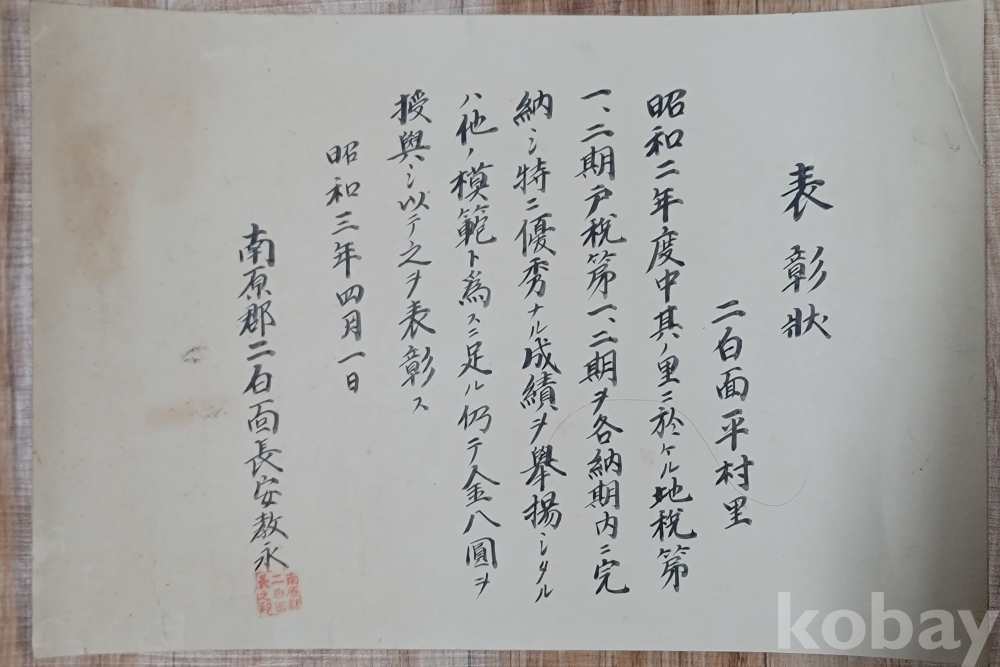 表彰狀
二白面平村里
昭和二年度中其ノ里ニ於ケル地稅第
一、二期戶稅第一、二期ヲ各納期内ニ完
納シ特ニ優秀ナル成績ヲ擧揚シタル
ハ他ノ模範ト爲スニ足ル仍テ金八圓ヲ
授與シ以テ之ヲ表彰ス
昭和三年四月一日
南原郡二白面長安教永
南原郡
二白面
長之印
kobay